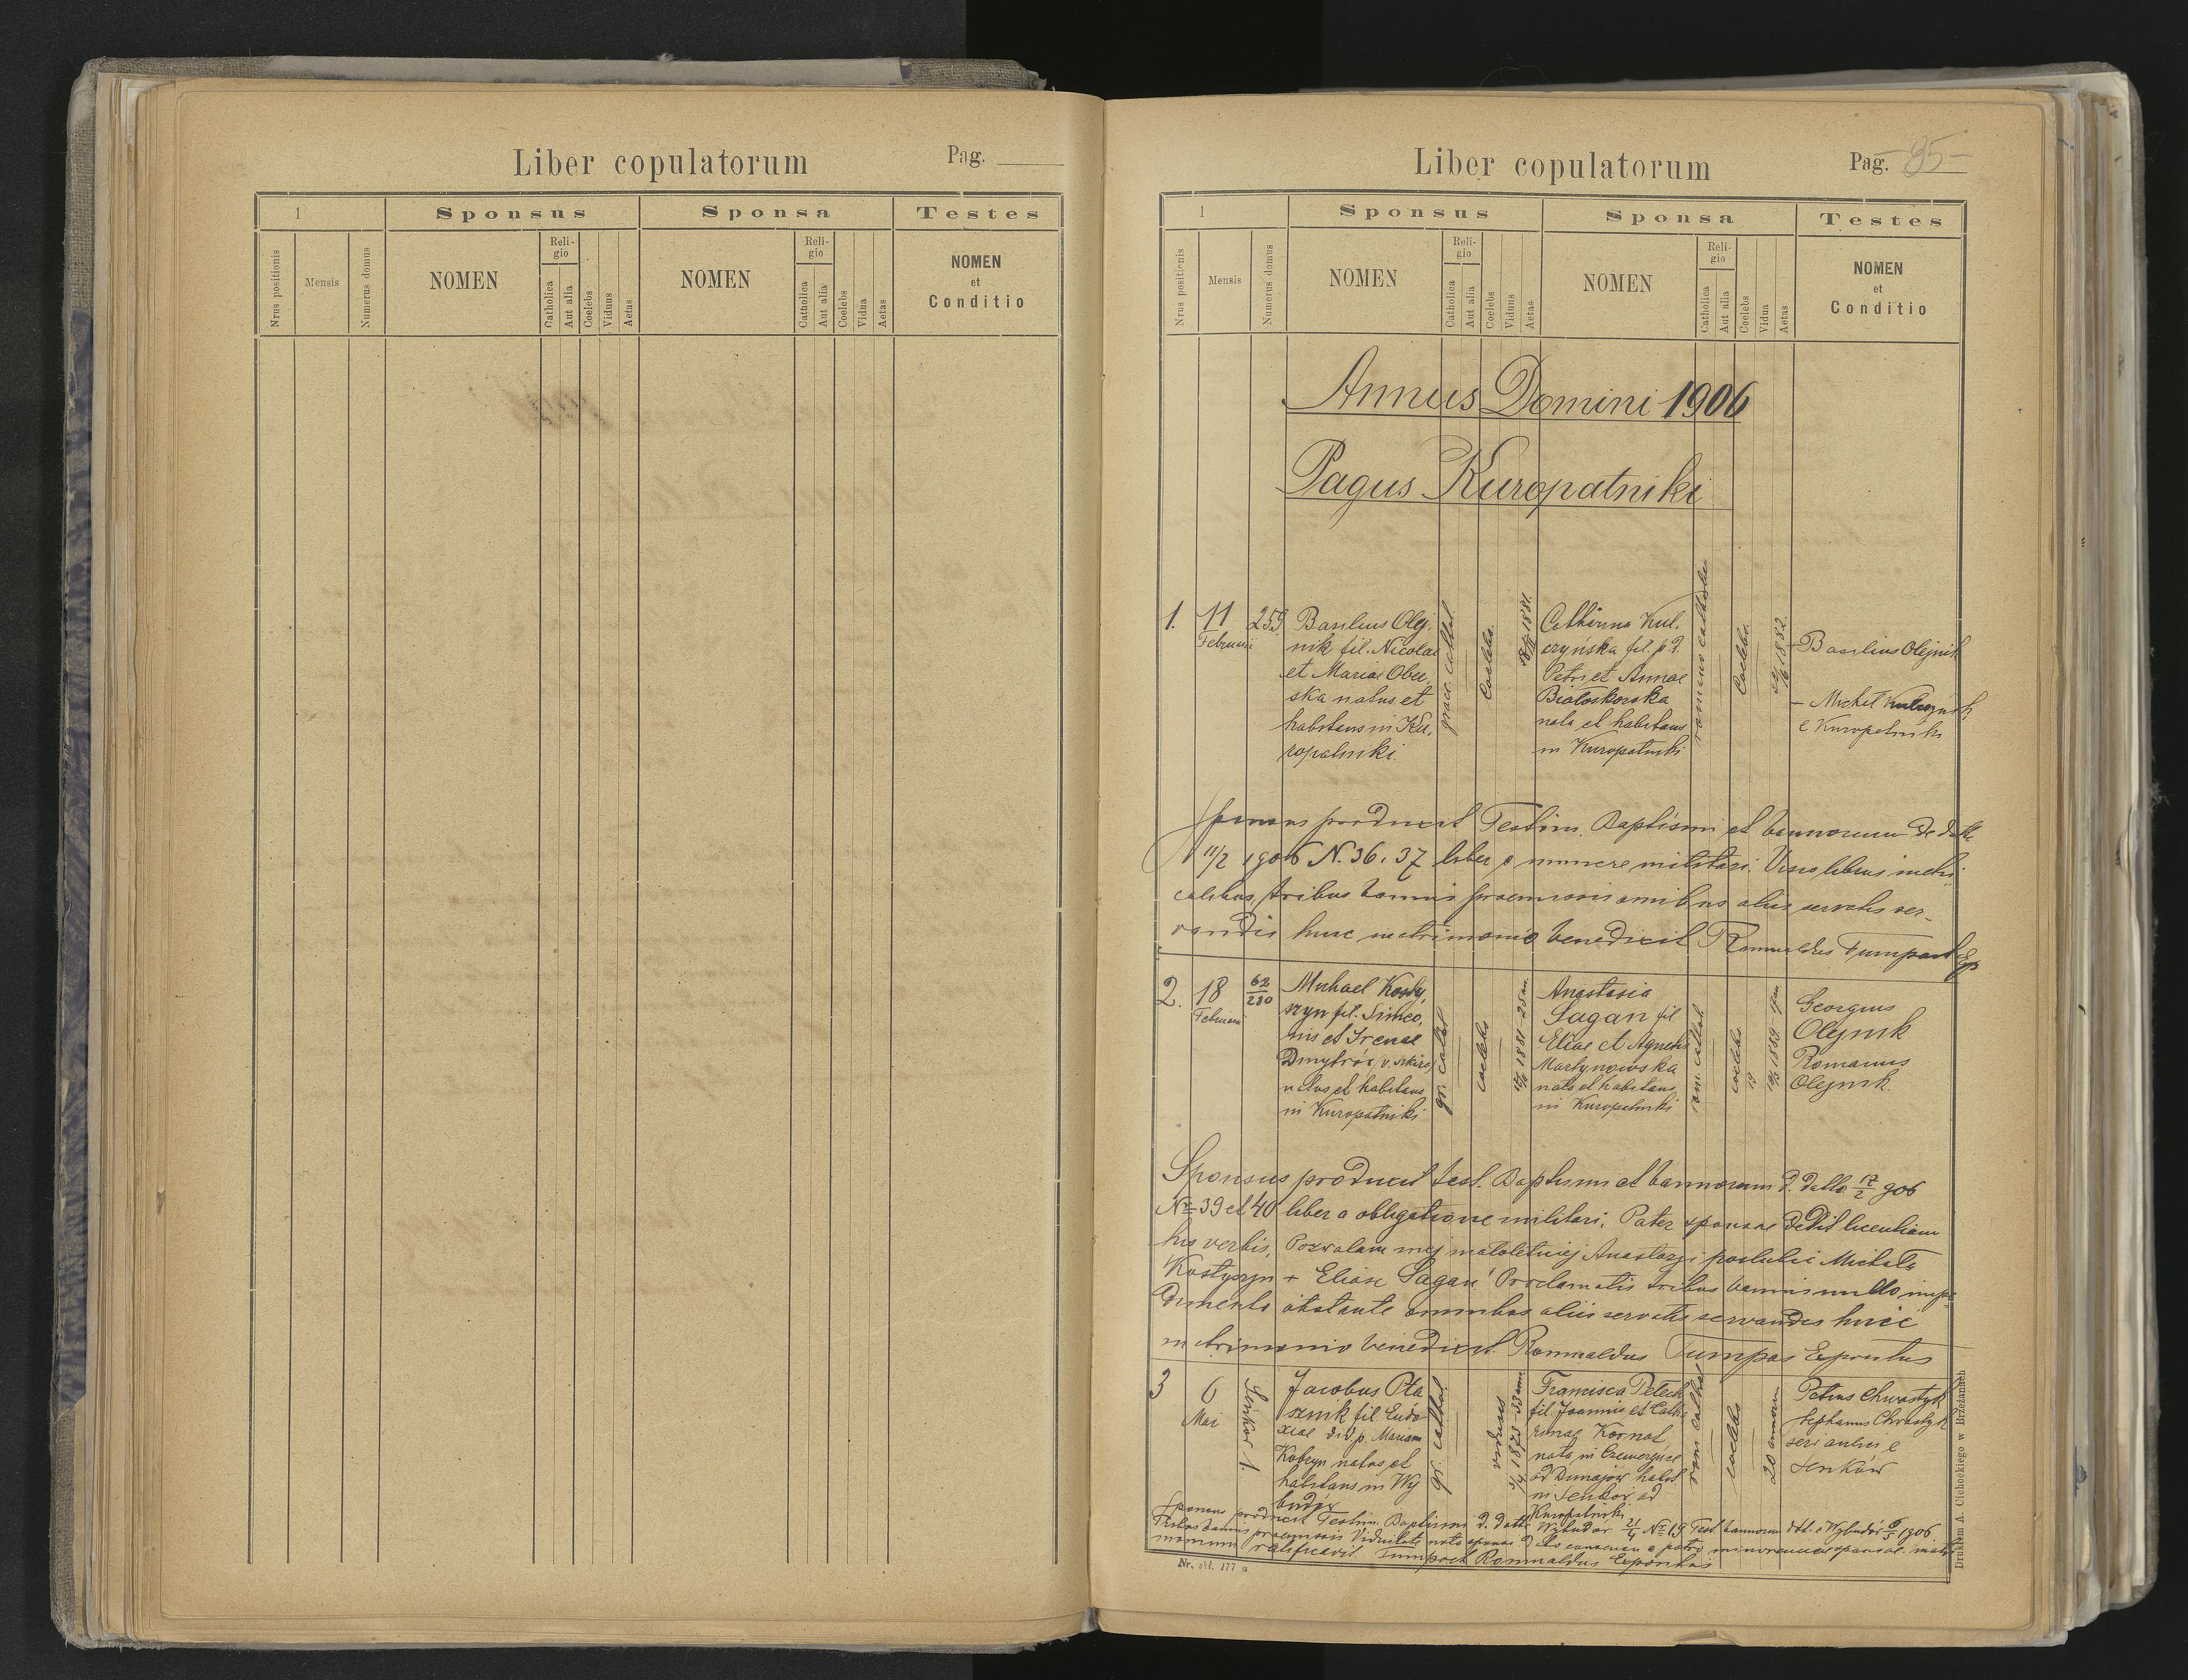 Liber copulatorum
Pag.
1
Sponsus
Sponsa
Testes
Nrus positionis
Mensis
Numerus domus
NOMEN
Religio
Catholica
Aut alia
Coelebs
Viduus
Aetas
NOMEN
Religio
Catholica
Aut alia
Coelebs
Vidua
Aetas
NOMEN
et
Conditio
Liber copulatorum
Pag. 95
1
Sponsus
Sponsa
Testes
Nrus positionis
Mensis
Numerus domus
NOMEN
Religio
Catholica
Aut alia
Coelebs
Viduus
Aetas
NOMEN
Religio
Catholica
Aut alia
Coelebs
Vidua
Aetas
NOMEN
et
Conditio
Annus Domini 1906
Pagus Kuropatniki
1.
11
Februarii
259
Basilius Olej
nik fil. Nicolai
et Mariae
ska natus et
habitans in Ku
ropatniki.
graec. cathol
Coelebs.
1881.
Catharina Kul
czyńska fil. p. d.
Petri et Annae
Białoskorska
nata et habitans
in Kuropatniki
romano catholica
Coelebs.
1882.
Basilius Olejnik
- Michel Kulczyński
e Kuropatniki
Sponsus produxit Testim. Baptismi et bannorum de dtto
11/2 1906 N. 36. 37 liber a munere militari. Visis libris metri
calibus, tribus bannis praemissis omnibus aliis servatis ser-
vandis huic matrimonio benedixit Romualdus Tumpach Exp
2.
18
Februarii
62
280
Michael Kosty
szyn fil. Simeo,
nis et Irenae
natus et habitans
in Kuropatniki
gr. cathol
coelebs
1881 25 an.
Anastasia
Sagan fil.
Eliae et Agnetis
Martynowska
nata et habitans
in Kuropatniki
rom. cathol.
coelebs
19
Georgius
Olejnik
Romanus
Olejnik
Sponsus produxit test. Baptismi et bannorum d. datto 17/2 906
Nr 39 et 40 liber a obligatione militari. Pater sponsae dedit licentiam
his verbis. Pozwalam mej małoletniej Anastazji poslubić Michała
Kostyszyn + Eliasz Sagan! Proclamatis tribus bannis nullo impe
dimento obstante omnibus aliis servatis servandis huic
matrimonio benedixit. Romualdus Tumpach Expositus
3
6
Mai
Senków 1.
Jacobus Pta
sznik fil. Eudo
xiae
Kobryn natus et
habitans in Wy
budów
gr. cathol
viduus
1873 33 ann.
Francisca Petech
fil. Joannis et Catha
rinae Kornal
nata in
ad Dunajów habit.
in Senków ad
Kuropatniki
rom. cathol
coelebs
20 annorum
Petrus Chwastyk
Stephanus Chwastyk
Senków
Sponsus produxit Testim. Baptismi d. datto Wybudów 21/4 Nr 19 Test bannorum dtt. e Wybudów 6/5 1906
Tribus bannis praemissis Viduitate nota sponsi
ratificavit Tumpach Romualdus Expositus
Nr. skł. 177 a
Drukiem A. Cichockiego w Brzeżanach